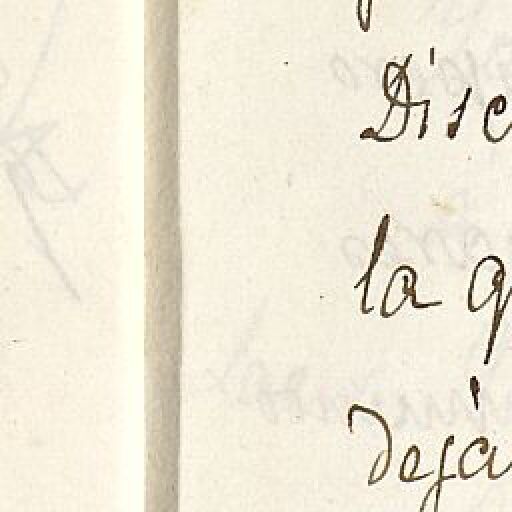 Disc
la q
deja